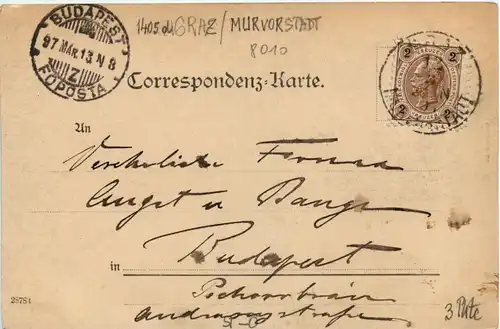 1405 GRAZ/MURVORSTADT
8010
BUDAPEST
97 MÁR. 13 N 8
Z
FŐPOSTA
2 2
2 2
Correspondenz-Karte.
An
Verehrliche Firma
August u
Budapest
in
Pschorrbräu
Andrassystraße
28781
3 Pkte